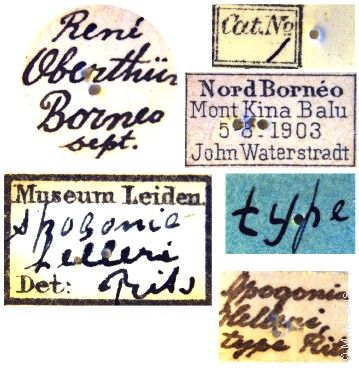 René
Oberthür
Borneo
sept.
Cat. No
1
Nord Bornéo
Mont Kina Balu
5-8-1903
John Waterstradt
Museum Leiden.
Apogonia
Helleri
Det: Rits
type
Apogonia
Helleri,
type Rits